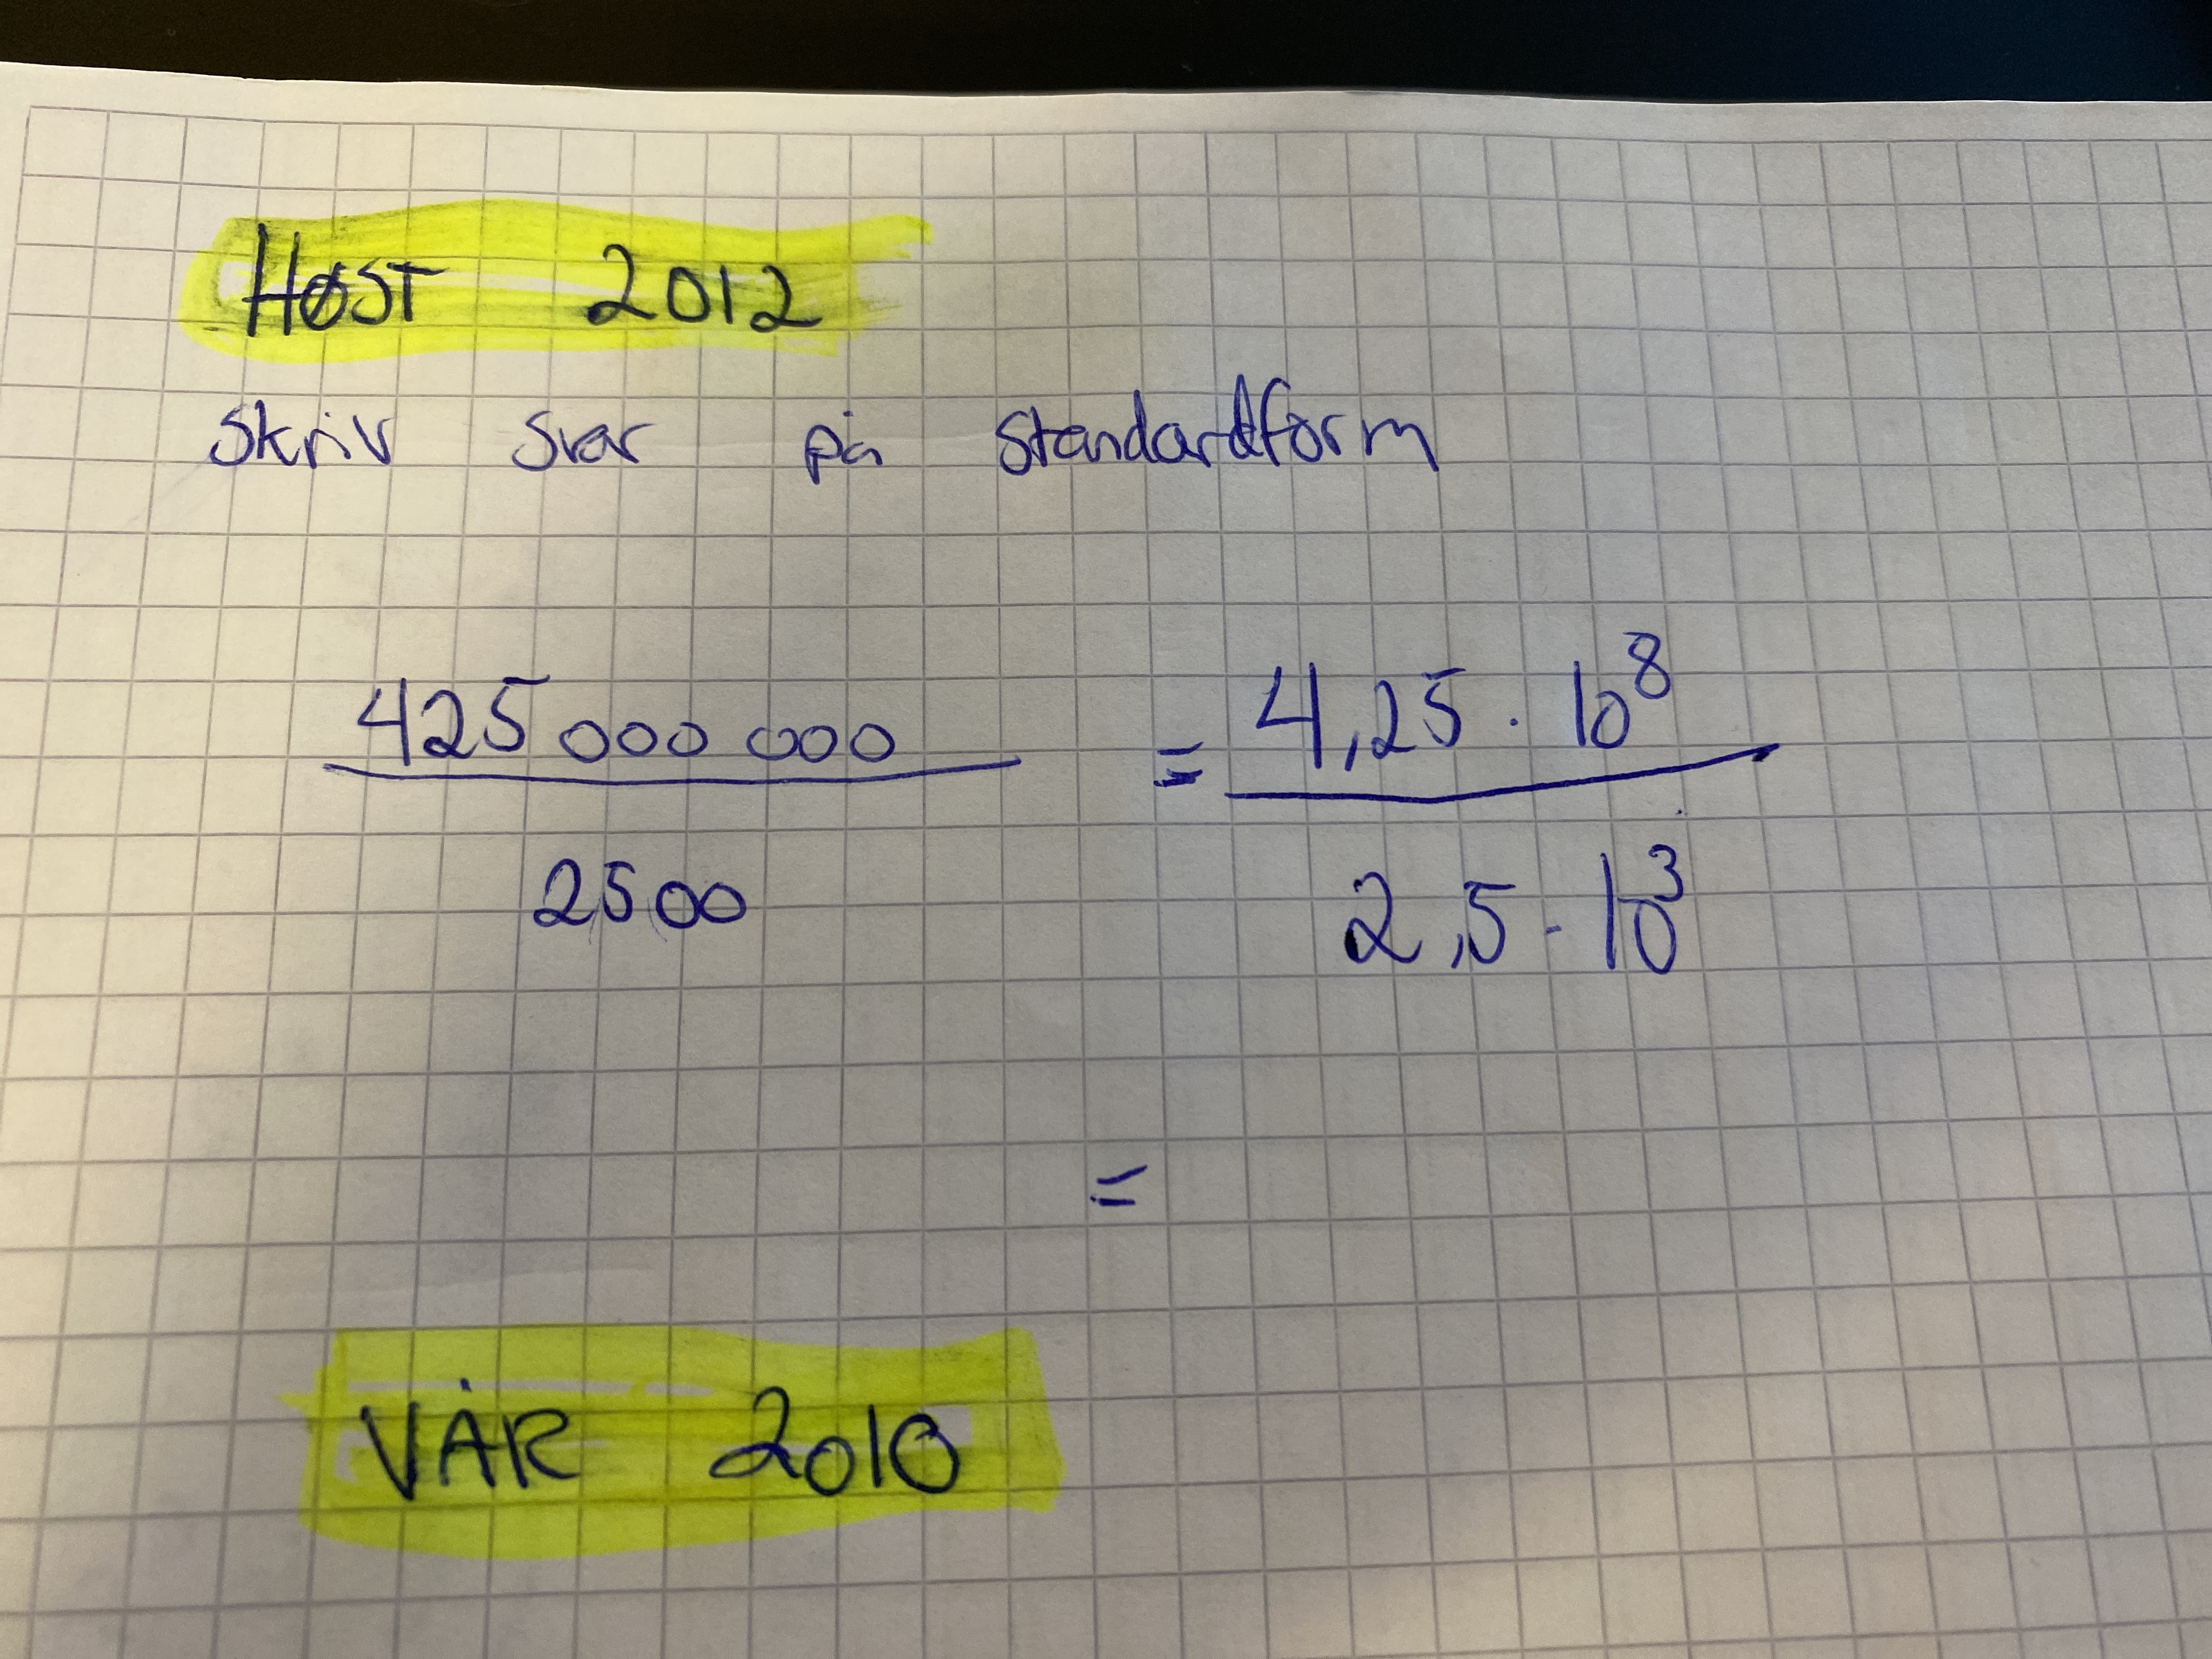 HØST 2012
Skriv svar på standardform
425 000 000 = 4,25 · 10⁸
2500 2,5 · 10³
=
VÅR 2010